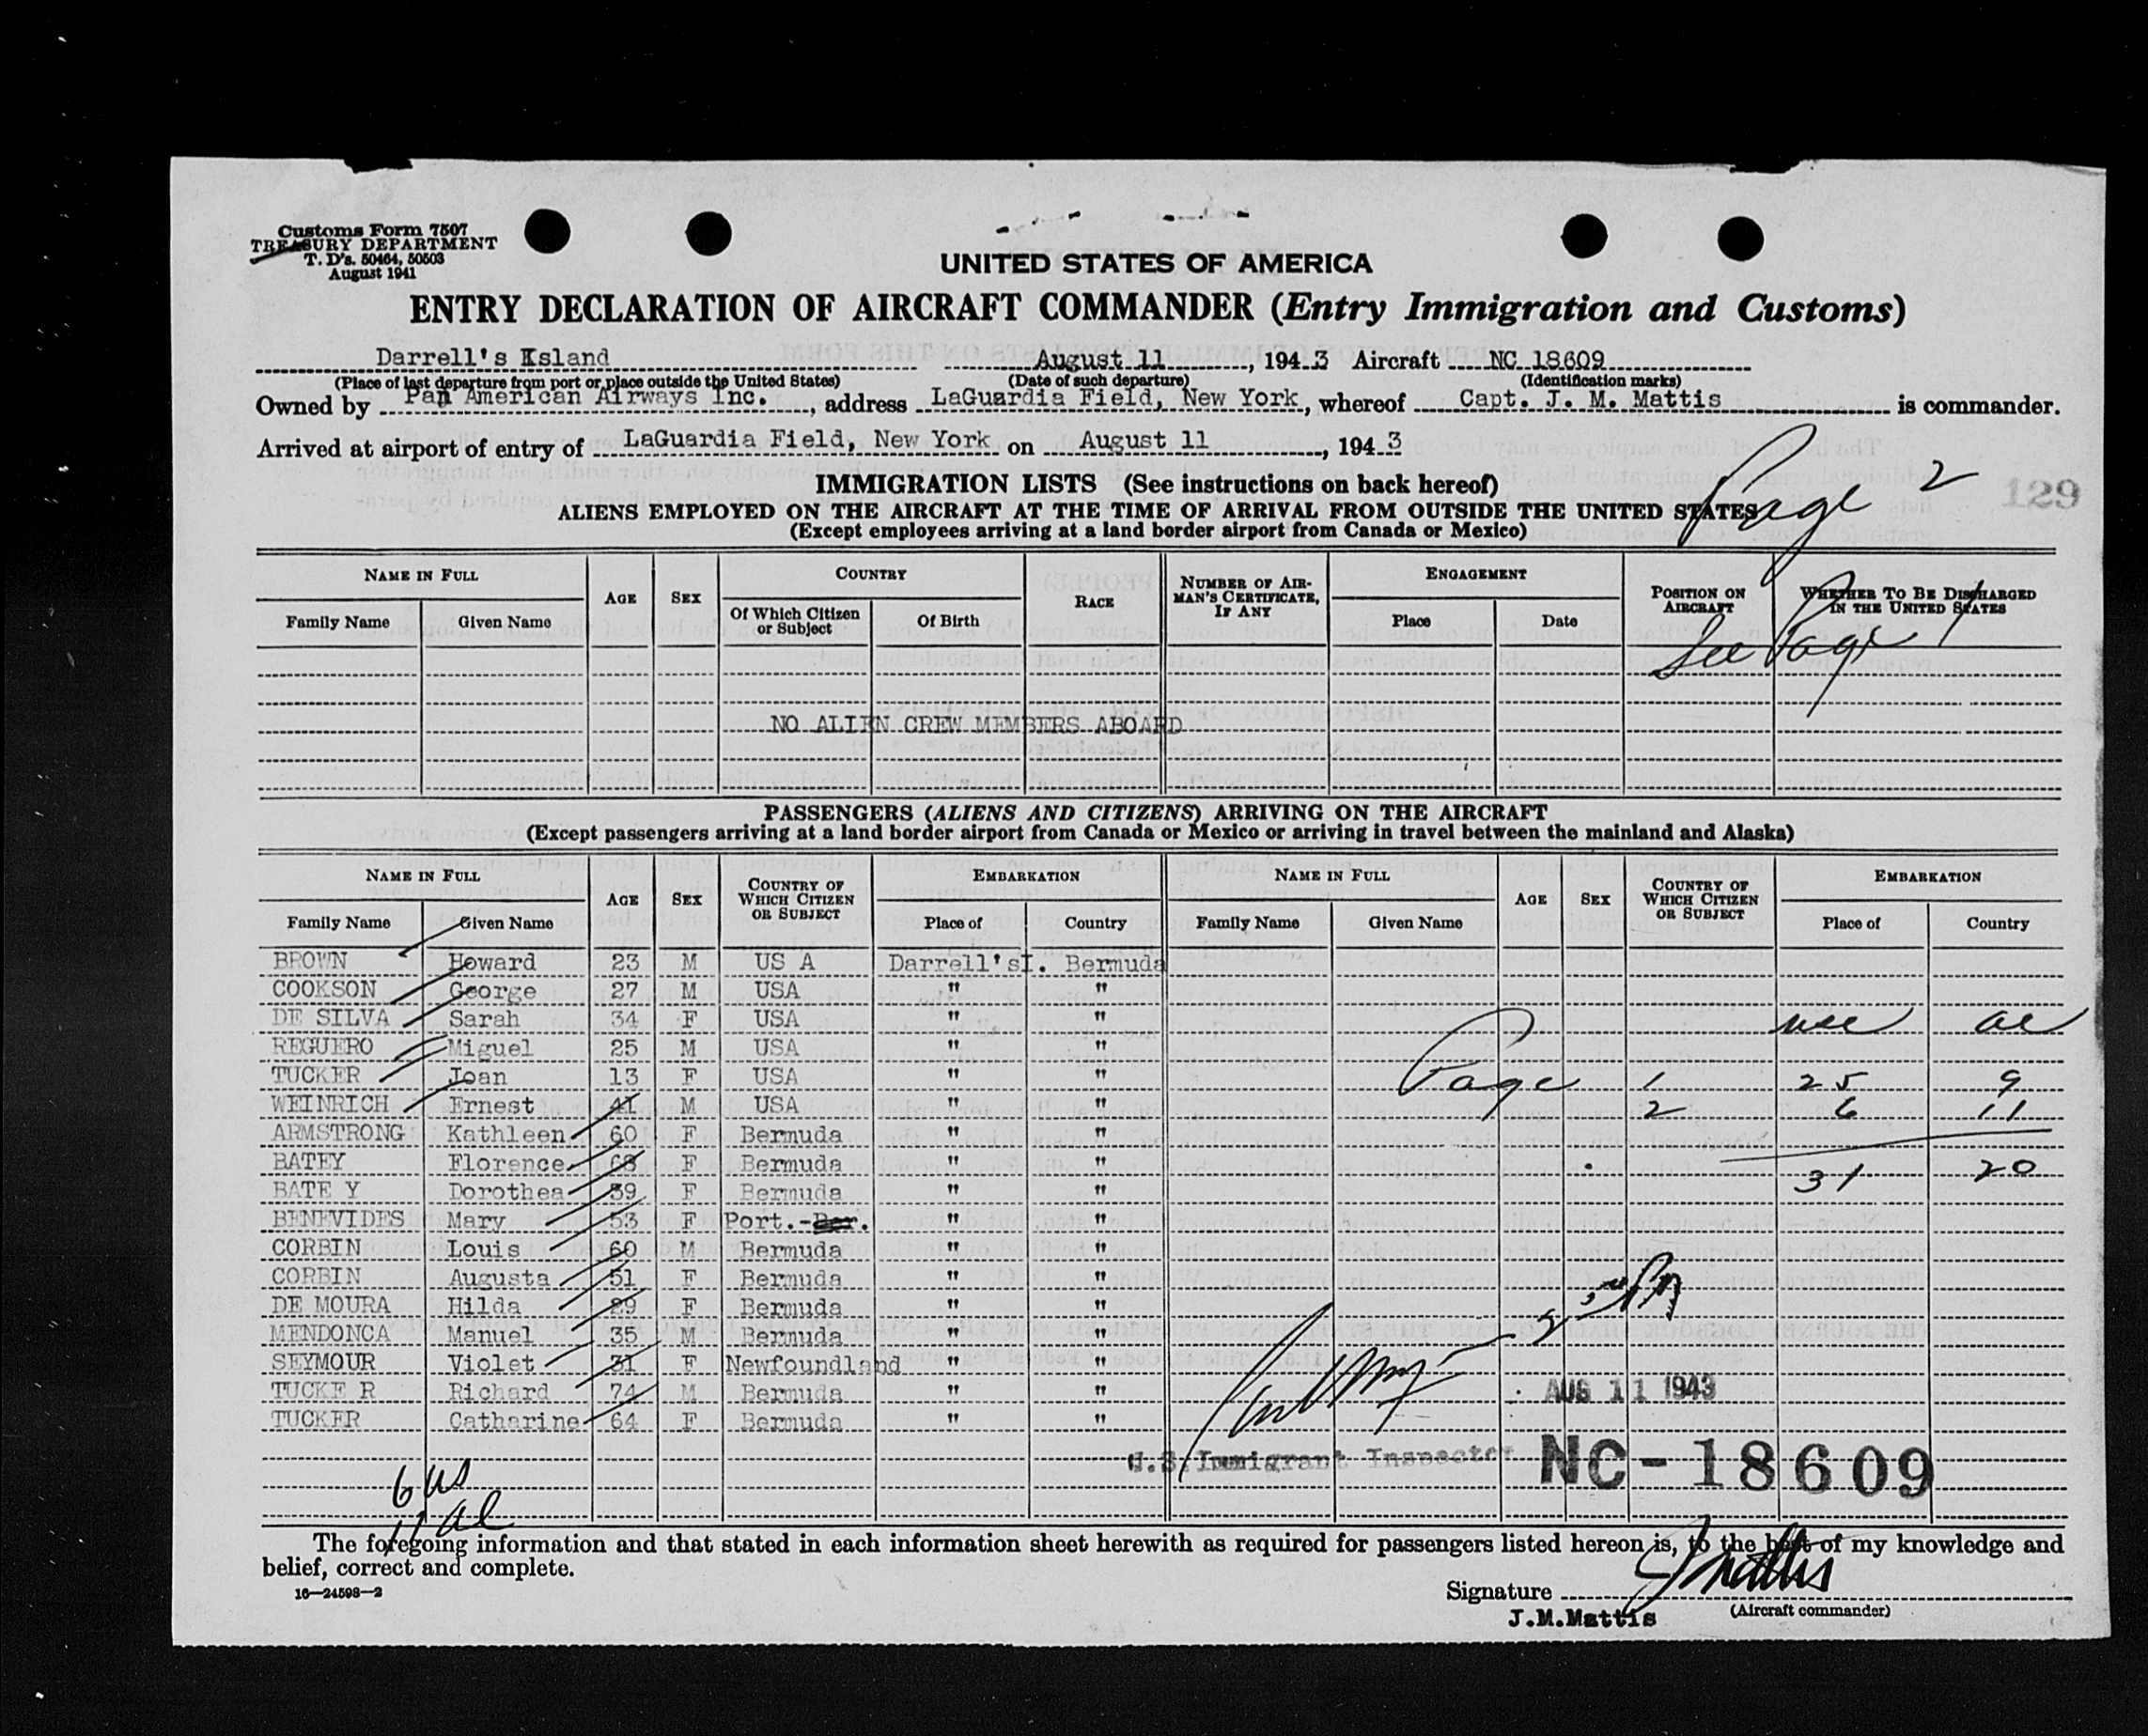 Customs Form 7507
TREASURY DEPARTMENT
T. D's. 50464, 50503
August 1941
UNITED STATES OF AMERICA
ENTRY DECLARATION OF AIRCRAFT COMMANDER (Entry Immigration and Customs)
Darrell's Island August 11, 1943 Aircraft NC 18609
(Place of last departure from port or place outside the United States) (Date of such departure) (Identification marks)
Owned by Pan American Airways Inc., address LaGuardia Field, New York, whereof Capt. J. M. Mattis is commander.
Arrived at airport of entry of LaGuardia Field, New York on August 11, 1943
Page 2
129
IMMIGRATION LISTS (See instructions on back hereof)
ALIENS EMPLOYED ON THE AIRCRAFT AT THE TIME OF ARRIVAL FROM OUTSIDE THE UNITED STATES
(Except employees arriving at a land border airport from Canada or Mexico)
NAME IN FULL AGE SEX COUNTRY RACE NUMBER OF AIRMAN'S CERTIFICATE, IF ANY ENGAGEMENT POSITION ON AIRCRAFT WHETHER TO BE DISCHARGED IN THE UNITED STATES
Family Name Given Name Of Which Citizen or Subject Of Birth Place Date
See Page 1
NO ALIEN CREW MEMBERS ABOARD
PASSENGERS (ALIENS AND CITIZENS) ARRIVING ON THE AIRCRAFT
(Except passengers arriving at a land border airport from Canada or Mexico or arriving in travel between the mainland and Alaska)
NAME IN FULL AGE SEX COUNTRY OF WHICH CITIZEN OR SUBJECT EMBARKATION NAME IN FULL AGE SEX COUNTRY OF WHICH CITIZEN OR SUBJECT EMBARKATION
Family Name Given Name Place of Country Family Name Given Name Place of Country
BROWN Howard 23 M US A Darrell'sI. Bermuda
COOKSON George 27 M USA " "
DE SILVA Sarah 34 F USA " " al
REGUERO Miguel 25 M USA " "
TUCKER Joan 13 F USA " " Page 1 25 9
WEINRICH Ernest 41 M USA " " 2 6 11
ARMSTRONG Kathleen 60 F Bermuda " "
BATEY Florence 68 F Bermuda " " 31 20
BATE Y Dorothea 39 F Bermuda " "
BENEVIDES Mary 53 F Port.-Ber. " "
CORBIN Louis 60 M Bermuda " "
CORBIN Augusta 51 F Bermuda " "
DE MOURA Hilda 29 F Bermuda " "
MENDONCA Manuel 35 M Bermuda " "
SEYMOUR Violet 31 F Newfoundland " "
TUCKE R Richard 74 M Bermuda " " AUG 11 1943
TUCKER Catharine 64 F Bermuda " "
U.S. Immigrant Inspector NC-18609
6 us
11 al
The foregoing information and that stated in each information sheet herewith as required for passengers listed hereon is, to the best of my knowledge and
belief, correct and complete.
16—24598—2
Signature J Mattis
J.M.Mattis (Aircraft commander)